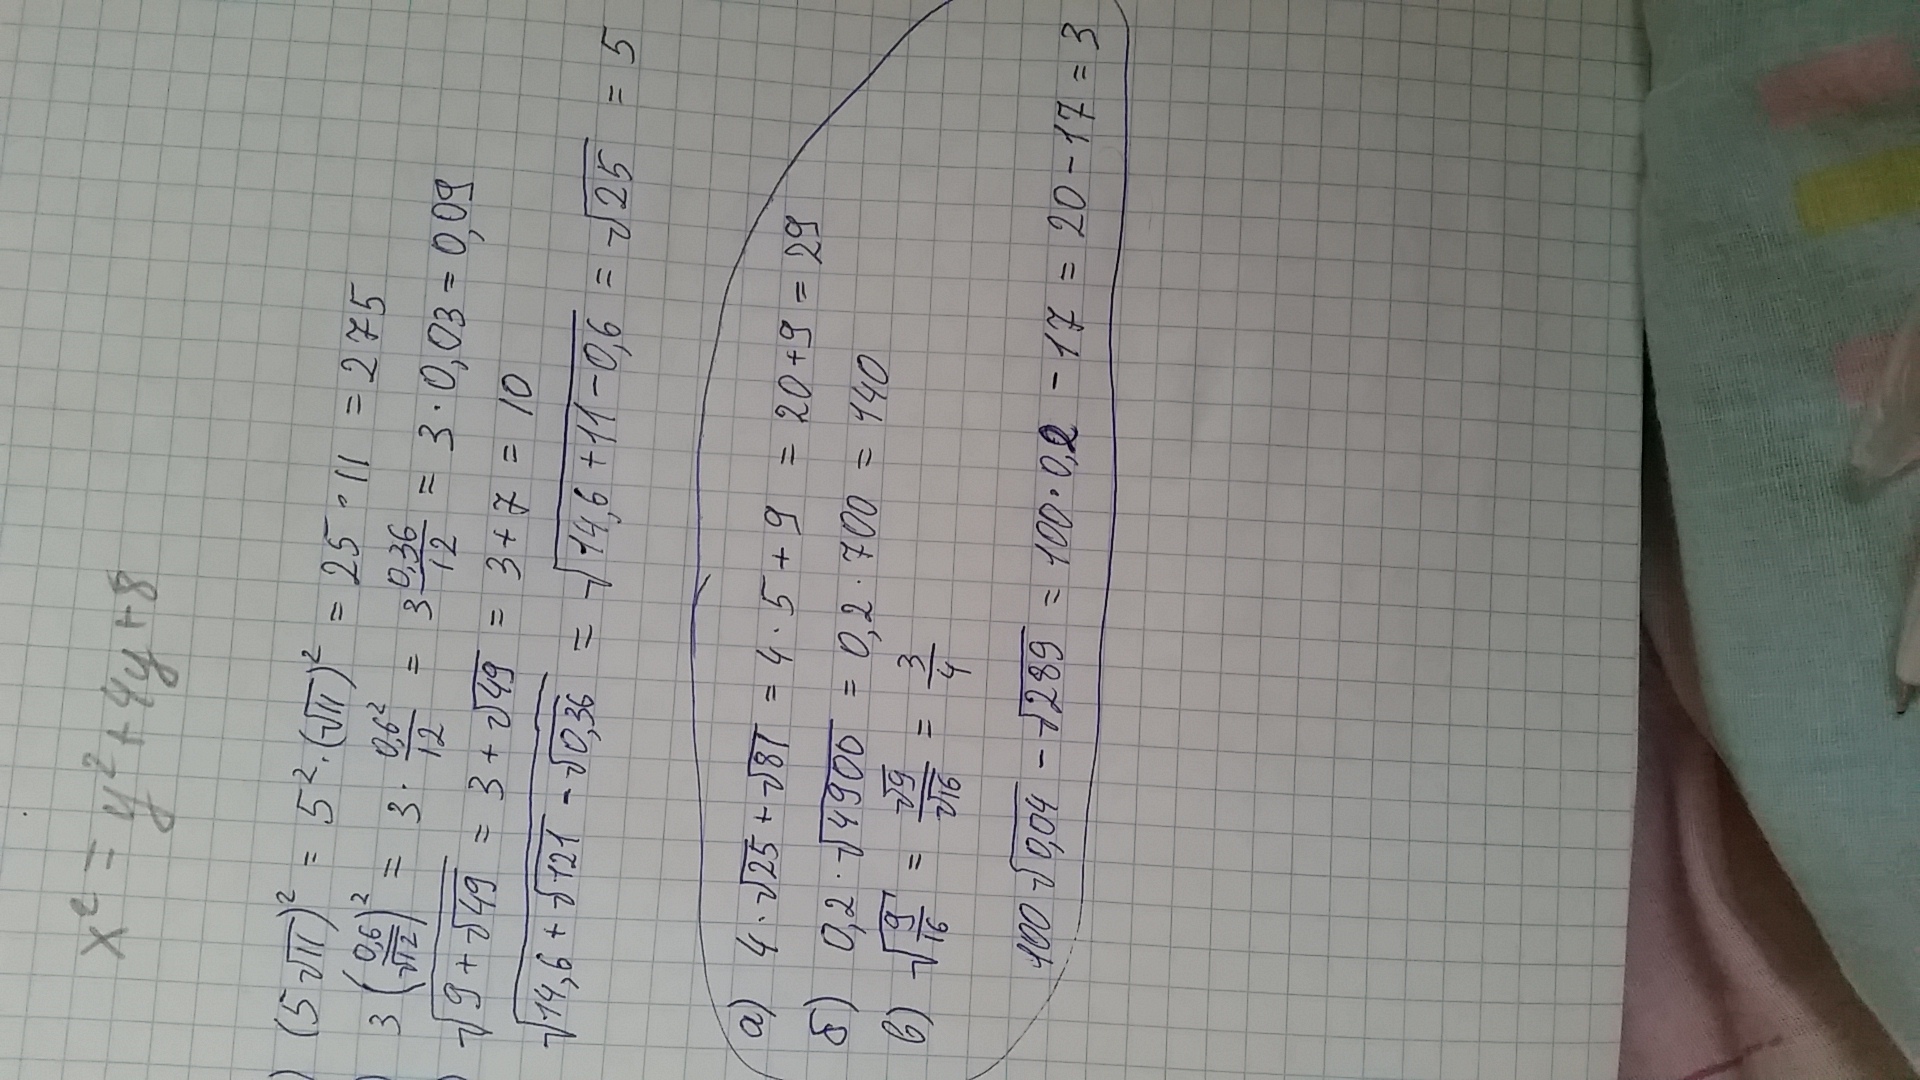 x² = y² + 4y + 8
) (5√11)² = 5² · (√11)² = 25 · 11 = 275
) 3(0,6/√12)² = 3 · 0,6²/12 = 3 0,36/12 = 3 · 0,03 = 0,09
) √9 + √49 = 3 + √49 = 3 + 7 = 10
√(14,6 + √121 - √0,36) = √(14,6 + 11 - 0,6) = √25 = 5
а) 4 · √25 + √81 = 4 · 5 + 9 = 20 + 9 = 29
б) 0,2 · √4900 = 0,2 · 700 = 140
в) √(9/16) = √9/√16 = 3/4
100√0,04 - √289 = 100 · 0,2 - 17 = 20 - 17 = 3